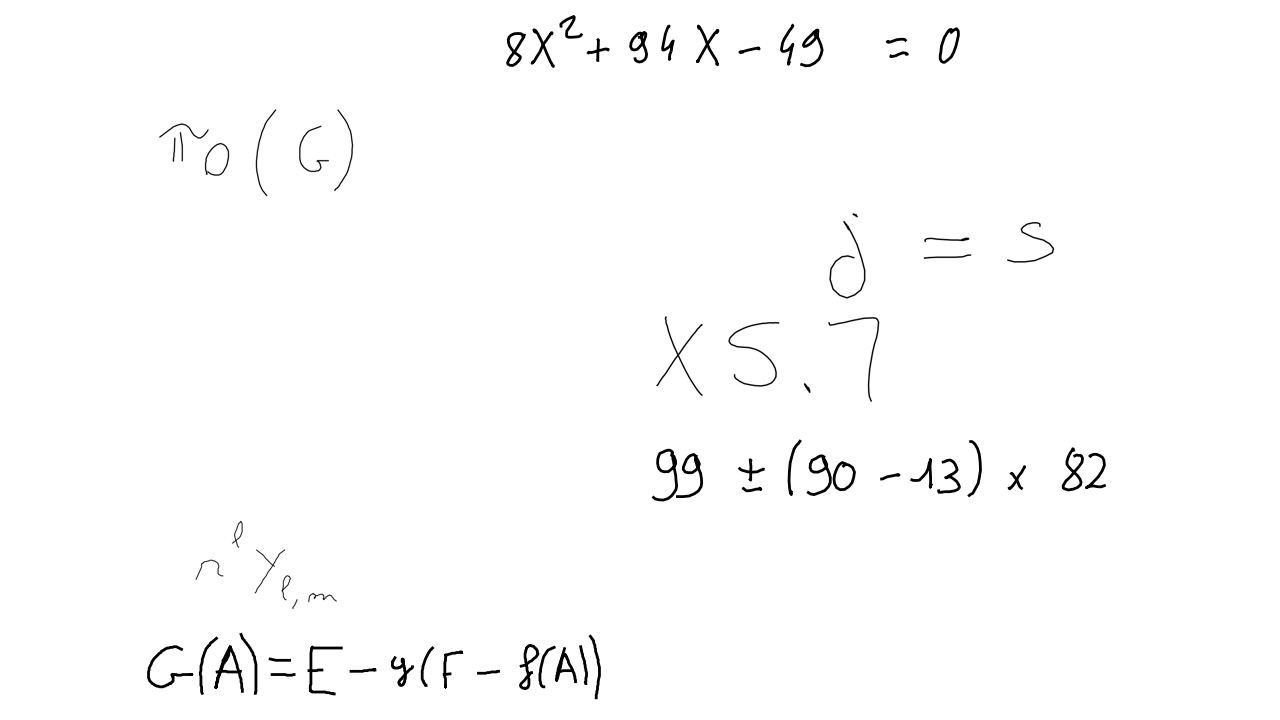 8X² + 94X - 49 = 0
π₀(G)
j = s
X5.7
99 ± (90 - 13) × 82
r^ℓ Y_{ℓ,m}
G(A) = E - g(F - f(A))